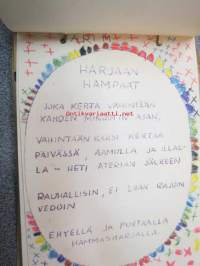 HARJAAN
HAMPAAT
JOKA KERTA VÄHINTÄÄN
KAHDEN MINUUTIN AJAN,
VÄHINTÄÄN KAKSI KERTAA
PÄIVÄSSÄ, AAMULLA JA ILLAL-
LA - HETI ATERIAN JÄLKEEN
RAUHALLISIN, EI LIIAN RAJUIN
VEDOIN
EHYELLÄ JA PUHTAALLA
HAMMASHARJALLA.